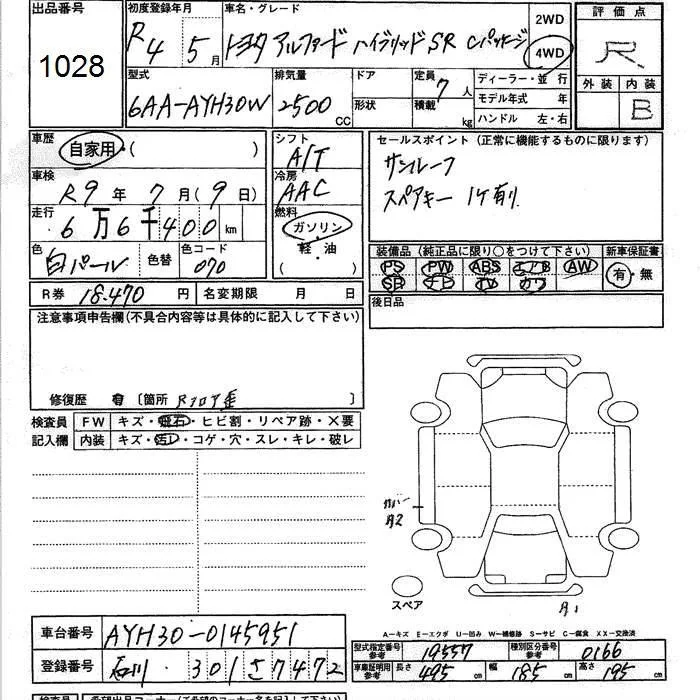 出品番号
1028
初度登録年月
R4 5月
車名・グレード
トヨタ アルファード ハイブリッド SR Cパッケージ
2WD
4WD
評価点
R
外装 内装
B
型式
6AA-AYH30W
排気量
2500 CC
ドア
形状
定員 7 人
積載 kg
ディーラー・並行
モデル年式 年
ハンドル 左・右
車歴
自家用・( )
車検
R9年 7月(9日)
走行
6万6千400km
色
白パール
色替
色コード
070
シフト
A/T
冷房
AAC
燃料
ガソリン
軽・油
( )
セールスポイント (正常に機能するものに限ります)
サンルーフ
スペアキー 1ケ有り
装備品 (純正品に限り○をつけて下さい)
新車保証書
PS PW ABS エアB AW
SR ナビ TV カワ
有・無
R券 18.470 円
名変期限 月 日
後日品
注意事項申告欄(不具合内容等は具体的に記入して下さい)
修復歴 有 [箇所 Rフロア歪 ]
検査員
記入欄
FW キズ・飛石・ヒビ割・リペア跡・×要
内装 キズ・汚レ・コゲ・穴・スレ・キレ・破レ
カバー
A2
スペア
A1
A-キズ E-エクボ U-凹み W-補修跡 S-サビ C-腐食 XX-交換済
車台番号 AYH30-0145951
登録番号 石川 301 さ 7472
型式指定番号
参考
19557
種別区分番号
参考
0166
車庫証明用
参考
長さ 495 cm
幅 185 cm
高さ 195 cm
検査員
希望出品コーナー(ご希望のコーナー名を記入